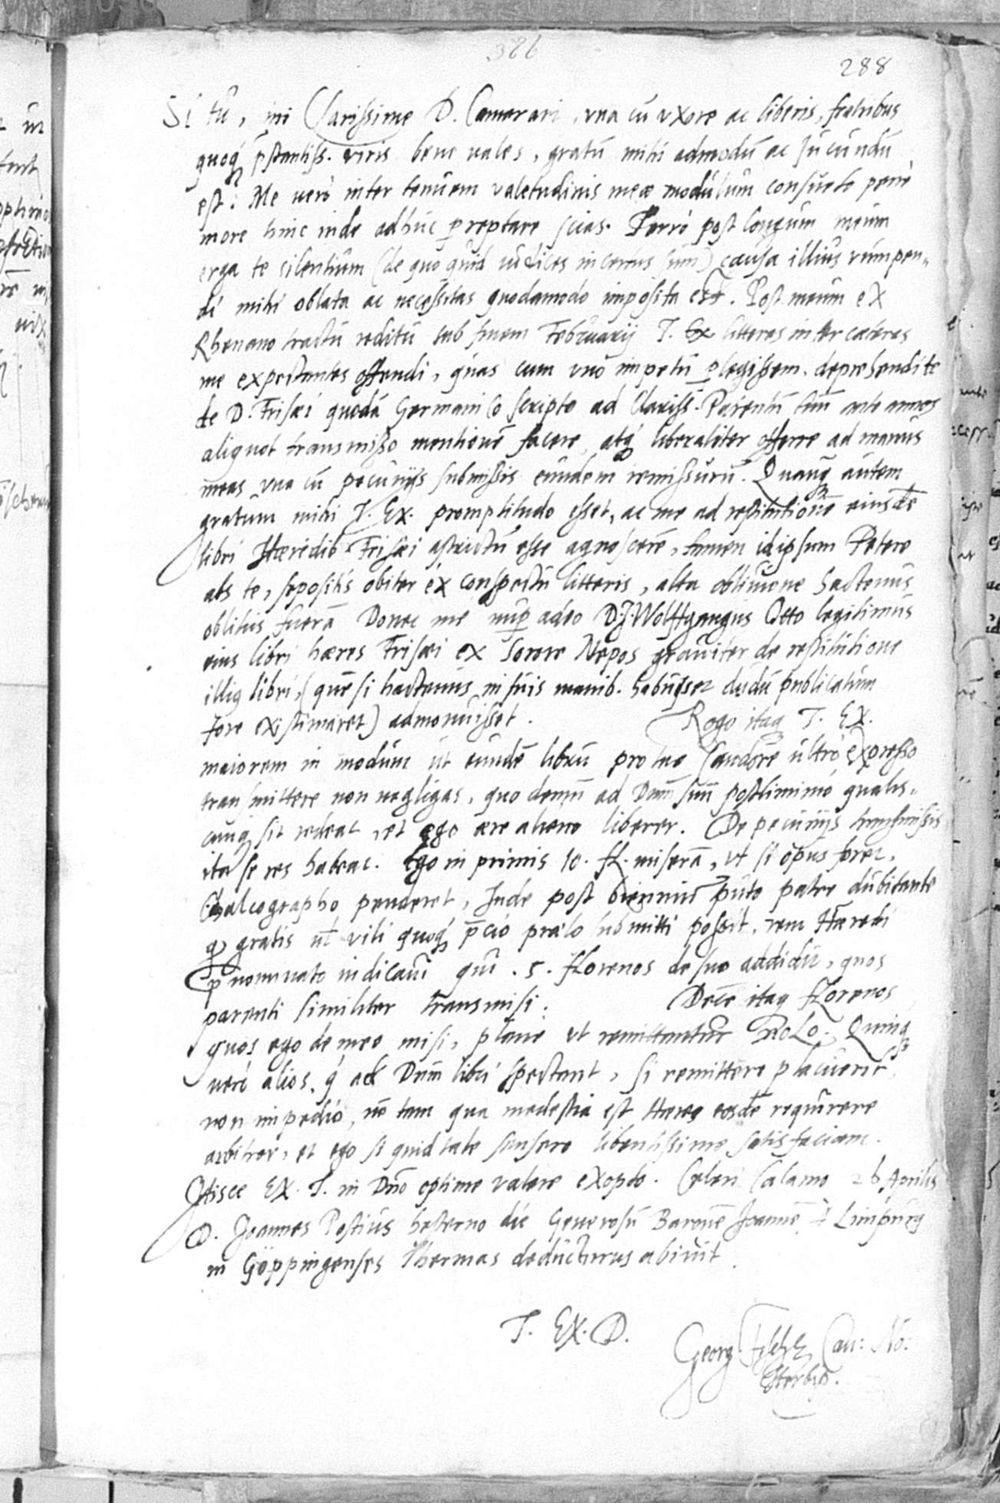 386
288
Si tu, mi Clarissime D. Camerari, una cū uxore ac liberis, fratribus
quoq; pstantiss. viris bene vales, gratū mihi admodū ac iucundū
est. Me verò inter tenuem valetudinis meæ modulum consueto penè
more hinc inde adhuc preptare scias. Porrò post longum meum
erga te silentium (de quo quid iudices incertus sum) causa illius rumpen-
di mihi oblata ac necessitas quodamodo imposita est. Post meum ex
Rhenano tractu reditū sub finem Februarij T. Ex litteras inter cæteras
me expectantes offendi, quas cum uno impetu plegissem. deprehendi te
de D. Frisæi quodā Germanico scripto ad Clariss. Parentū tuū ante annos
aliquot transmisso mentionē facere, atq; liberaliter offerre ad manus
meas una cū pecunijs submissis eundem remissurū. Quanq autem
gratum mihi T. Ex. promptitudo esset, ac me ad restitutionē eiusdē
libri Hæredib. Frisæi astrictū esse agnoscerē, tamen id ipsum Petere
abs te, sepositis obiter ex conspectu litteris, alta oblivione hactenus
oblitus fuerā Donec me nup adeo D. Wolffgangus Otto legitimus
eius libri hæres Frisæi ex Sorore Nepos graviter de restitutione
illiq libri, (quē si hactenus in suis manib. habuisset dudū publicatum
fore existimaret) admonuisset. Rogo itaq T. Ex.
maiorem in modum ut eundē librū pro tuo candore ultrò expresso
transmittere non negligas, quo demū ad Dnm suū postliminio qualis-
cunq; sit redeat, et ego ære alieno liberer. De pecunijs transmissis
ita se res habeat. Ego in primis 10. fl. miserā, ut si opus foret,
Chalcographo penderet, Inde post biennium puto patre dubitante
q gratis ut vili quoq; pcio prælo submitti possit, rem Hæredi
p nominato indicavi qui .5. florenos de suo addidit, quos
parenti similiter transmisi. Decē itaq florenos
quos ego de meo misi, planè ut remittantur NoLo. Quinq
verò alios, q ad Dnm libri spectant, si remittere placuerit
non impedio, nō tam qua modestia est Hæres eosdē requirere
arbitror, et ego si quid tale sensero libentissimè satisfaciam.
Hisce Ex. T. in Dno optimè valere exopto. Celeri Calamo 26 Aprilis
D. Joannes Postius hesterno die Generosū Baronē Joannē à Limpurg
in Göppingenses Thermas deducturus abivit.
T. Ex. D.
Georg Can: No:
Herbip.